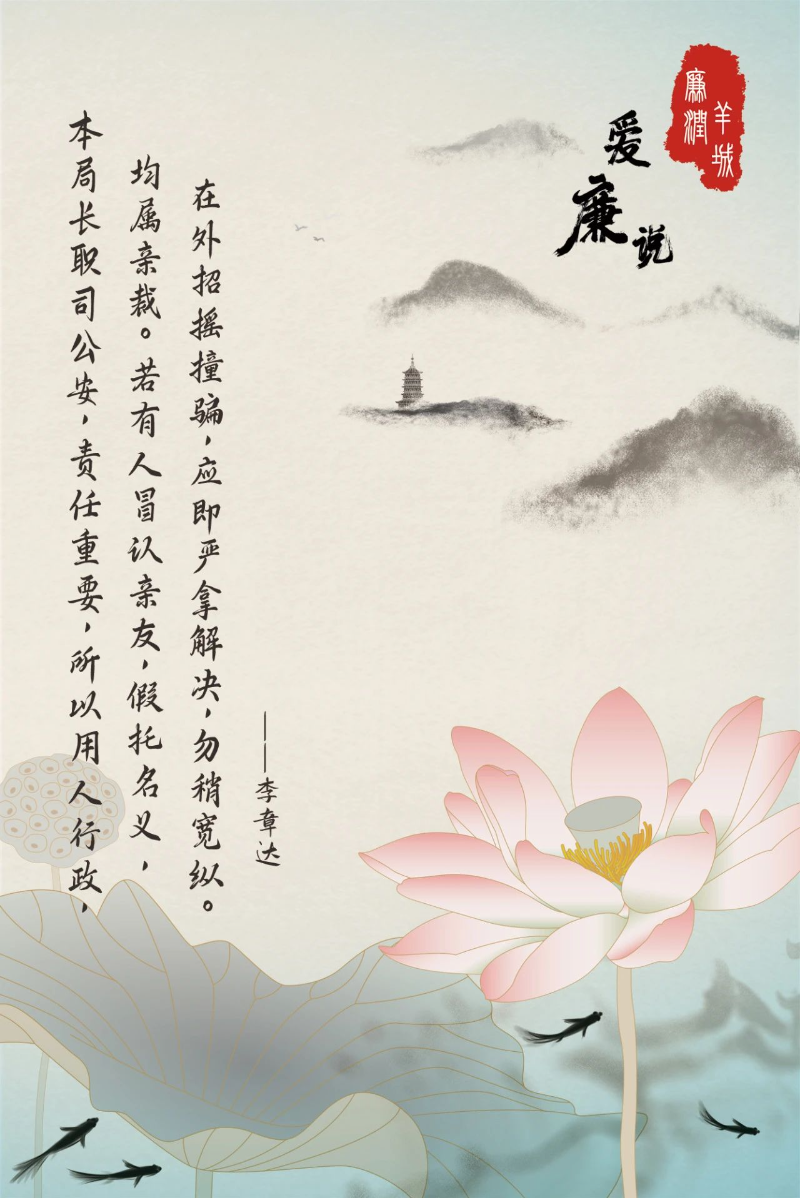 廉潤
羊城
爱廉说
本局长职司公安，责任重要，所以用人行政，
均属亲裁。若有人冒认亲友，假托名义，
在外招摇撞骗，应即严拿解决，勿稍宽纵。
——李章达